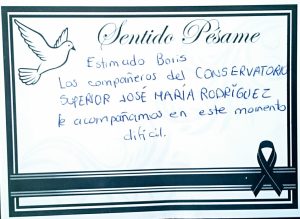 Sentido Pésame
Estimado Boris
Los compañeros del CONSERVATORIO
SUPERIOR JOSÉ MARÍA RODRÍGUEZ
te acompañamos en este momento
difícil.